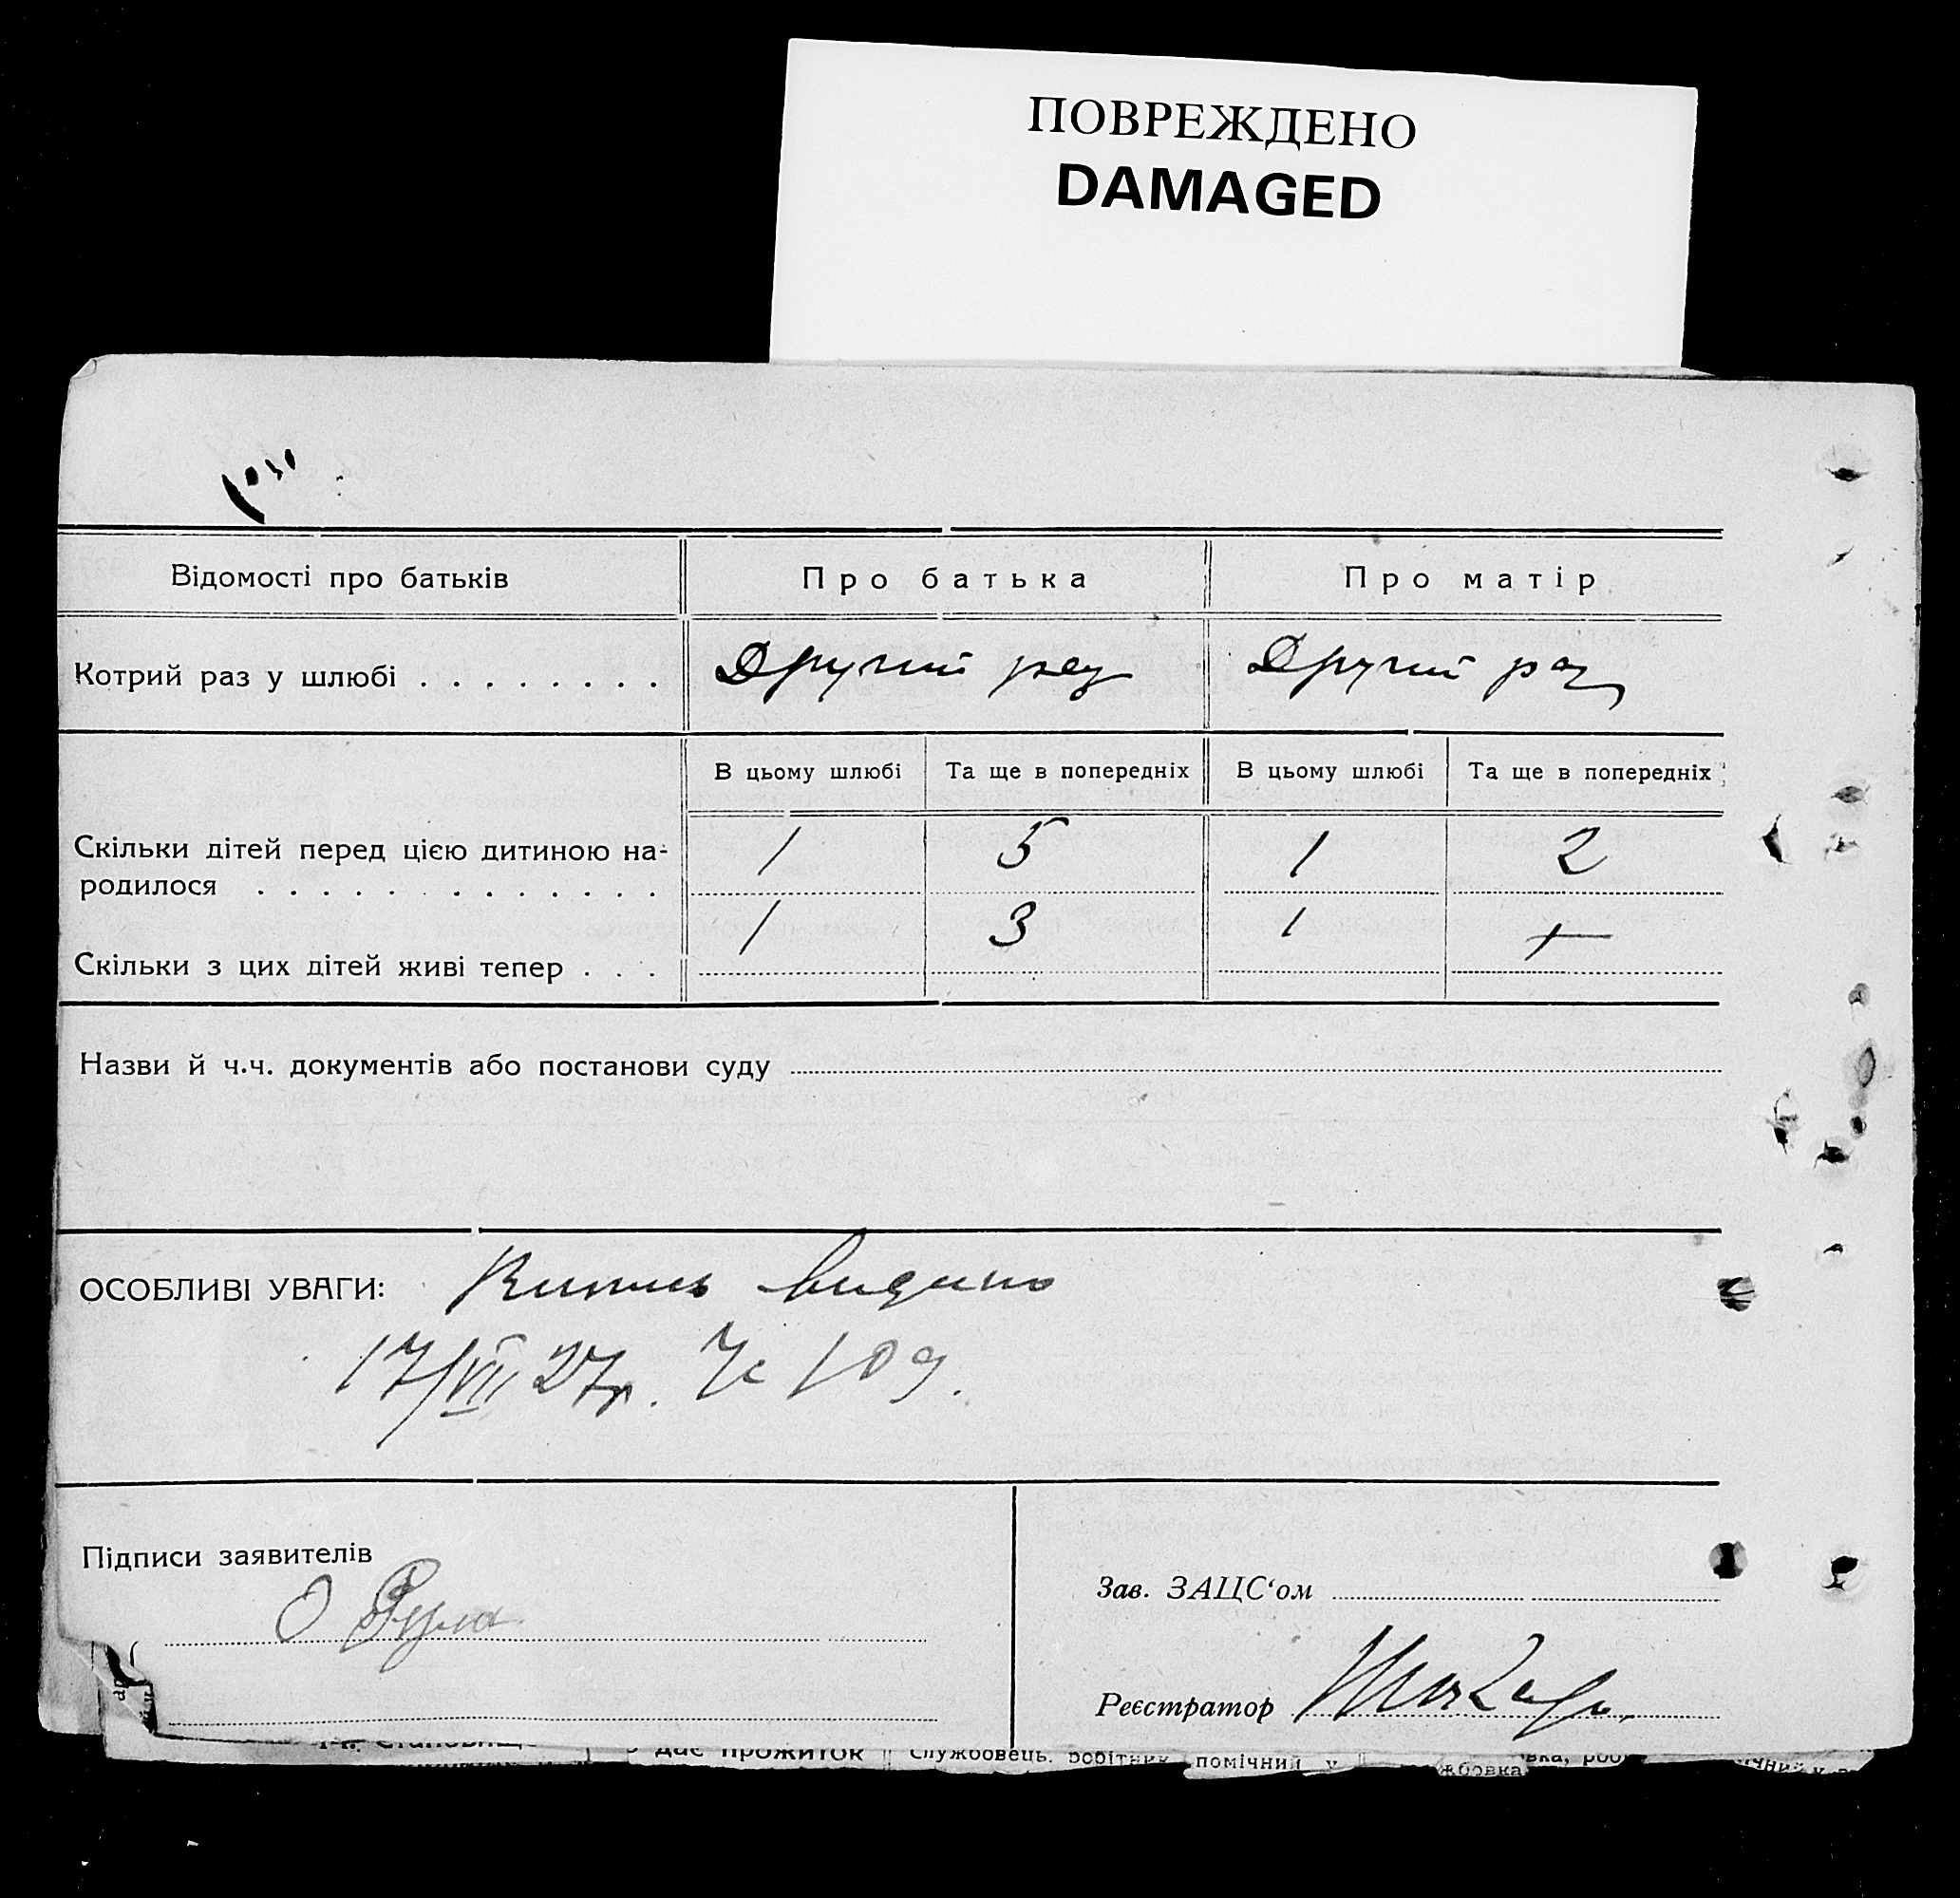 ПОВРЕЖДЕНО
DAMAGED
Відомості про батьків
Про батька
Про матір
Котрий раз у шлюбі . . . . . . . .
Другий раз
Другий раз
В цьому шлюбі
Та ще в попередніх
В цьому шлюбі
Та ще в попередніх
Скільки дітей перед цією дитиною на-
родилося . . . . . . . . . . . . .
1
5
1
2
Скільки з цих дітей живі тепер . . .
1
3
1
Назви й ч.ч. документів або постанови суду
ОСОБЛИВІ УВАГИ: Випись видано
17/VII 27р. 109.
Підписи заявителів
О
Зав. ЗАЦС‘ом
Реєстратор
дає прожиток
службовець, робітник, помічний у